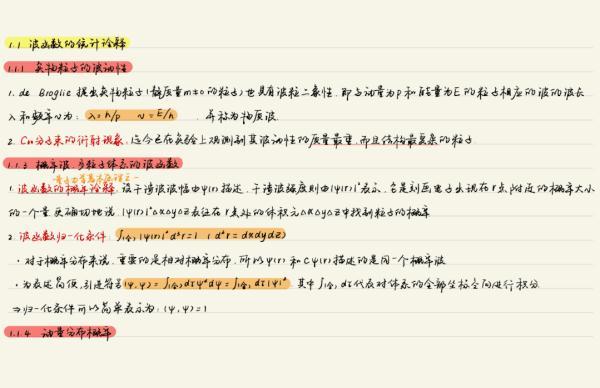 1.1 波函数的统计诠释
1.1.1 实物粒子的波动性
1. de Broglie 提出实物粒子(静质量m≠0的粒子)也具有波粒二象性,即与动量为p和能量为E的粒子相应的波的波长
λ和频率ν为: λ=h/p ν=E/h ,并称为物质波.
2. C₆₀分子束的衍射现象,迄今已在实验上观测到其波动性的质量最重,而且结构最复杂的粒子
1.1.2 概率波,多粒子体系的波函数
1. 波函数的概率诠释,设干涉波波幅由ψ(r)描述,干涉波强度则由|ψ(r)|²表示,它是刻画电子出现在r点附近的概率大小
的一个量.更确切地说 |ψ(r)|²ΔxΔyΔz表征在r点处的体积元ΔxΔyΔz中找到粒子的概率
2. 波函数归一化条件: ∫(全)|ψ(r)|²d³r=1 (d³r=dxdydz)
· 对于概率分布来说,重要的是相对概率分布,所以ψ(r)和Cψ(r)描述的是同一个概率波
· 为表述简便,引进符号(ψ,ψ)=∫(全)dτψ*dψ=∫(全)dτ|ψ|²,其中∫(全)dτ代表对体系的全部坐标空间进行积分
⇒归一化条件可以简单表示为:(ψ,ψ)=1
1.1.4 动量分布概率